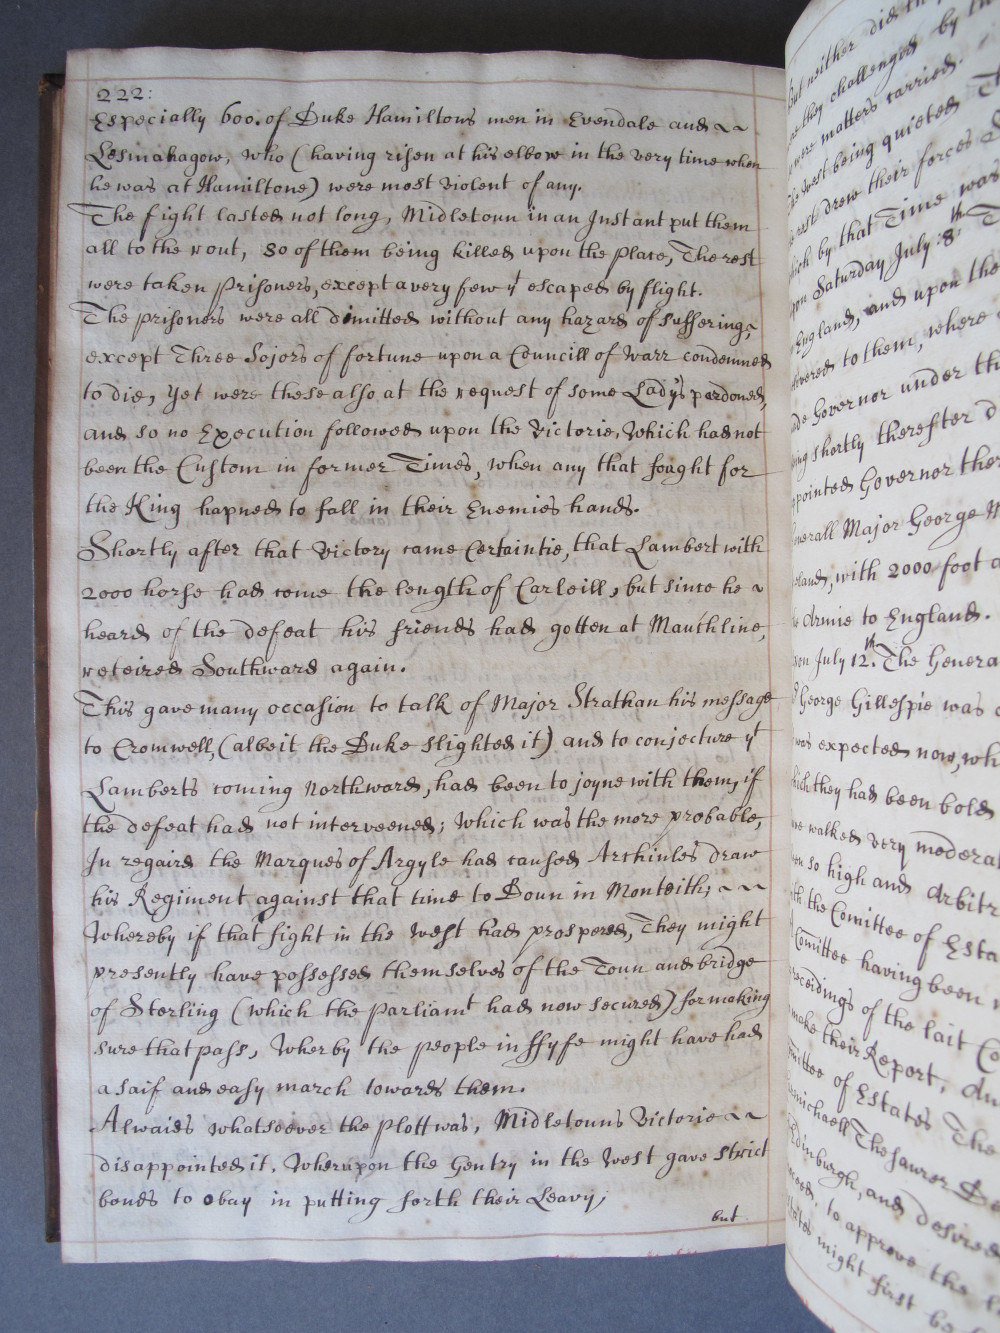 222:
Especially 600. of Duke Hamiltons men in Evendale and ~~
Lesmahagow, who (having risen at his elbow in the very time when
he was at Hamiltone) were most violent of any.
The fight lasted not long, Midletoun in an Instant put them
all to the rout, 80 of them being killed upon the place, The rest
were taken prisoners, except a very few yt escaped by flight.
The prisoners were all dimitted without any hazard of suffering,~
except Three Sojors of fortune upon a Councill of warr condemned
to die, yet were these also at the request of some Lady's pardoned,
and so no Execution followed upon the Victorie, Which had not
been the Custom in former Times, when any that fought for
the King hapned to fall in their Enemies hands.
Shortly after that Victory came Certaintie, that Lambert with
2000 horse had come the length of Carleill, but since he ~
heard of the defeat his friends had gotten at Mauthline,
reteired Southward again.
This gave many occasion to talk of Major Strathan his message
to Cromwell, (albeit the Duke slighted it) and to conjecture yt
Lamberts coming Northward, had been to joyne with them, if
the defeat had not interveened; Which was the more probable,
In regaird the Marques of Argyle had caused Archinles draw
his Regiment against that time to Doun in Monteith; ~~~
Whereby if that fight in the West had prospered, They might
presently have possessed themselves of the Toun and bridge
of Sterling (which the parliamt had now secured) for making
sure that pass, Wherby the people in ffyfe might have had
a saif and easy march towards them.
Alwaies whatsoever the plott was, Midletouns Victorie ~~
disappointed it. Wherupon the Gentry in the West gave strict
bonds to obay in putting forth their Leavy;
but
But neither did
they challenged by
were matters carried.
The west being quieted
drew their forces
by that Time was
upon Saturday July :8th: T
England, and upon the
to them, where
Governor under th
shortly thereafter
Governor ther
Generall Major George M
with 2000 foot
Armie to England.
July 12th. The Genera
George Gillespie was
was expected now, wh
they had been bold
walked very modera
so high and Arbitr
the Comittee of Esta
Comittee having been
of the lait Co
make their Report, An
of Estates The
The sawrer
Edinburgh, and desired
to approve the
might first be